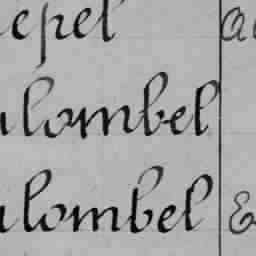 epel a
lombel
lombel E